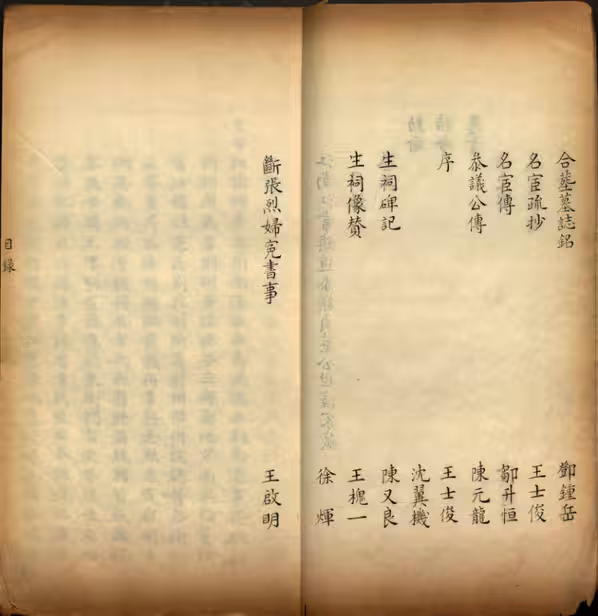 合葬墓誌銘 鄧鍾岳
名宦疏抄 王士俊
名宦傳 鄒升恒
叅議公傳 陳元龍
序 王士俊
沈翼機
生祠碑記 陳又良
生祠像贊 王槐一
徐煇
斷張烈婦寃書事 王啟明
目錄